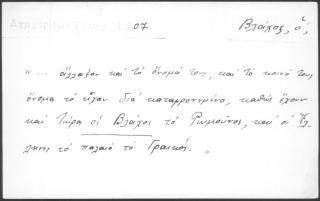 07
Βλάχος, ὁ,
"... ἄλλαξαν καὶ τὸ ὄνομά τους, καὶ τὸ κοινό τους
ὄνομα τὸ εἶχαν διὰ καταφρονεμένο, καθὼς ἔχουν
καὶ τώρα οἱ Βλάχοι τὸ Ρωμοῦνος, καὶ οἱ Ἕλ-
ληνες τὸ παλαιὸ τὸ Γραικός. "